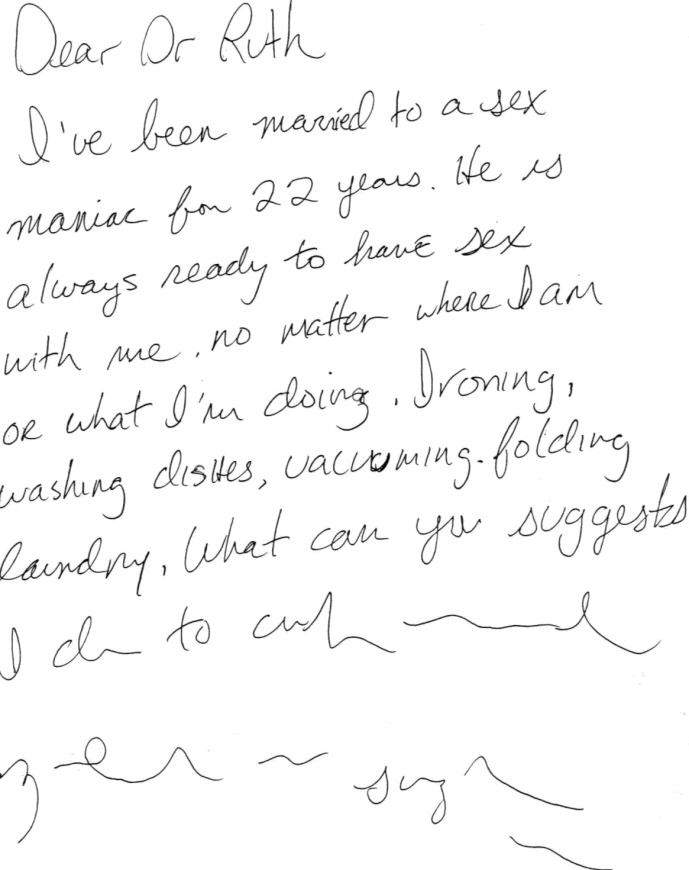 Dear Dr Ruth
I've been married to a sex
maniac for 22 years. He is
always ready to have sex
with me, no matter where I am
or what I'm doing. Ironing,
washing dishes, vacuuming. folding
laundry, What can you suggests
I do to